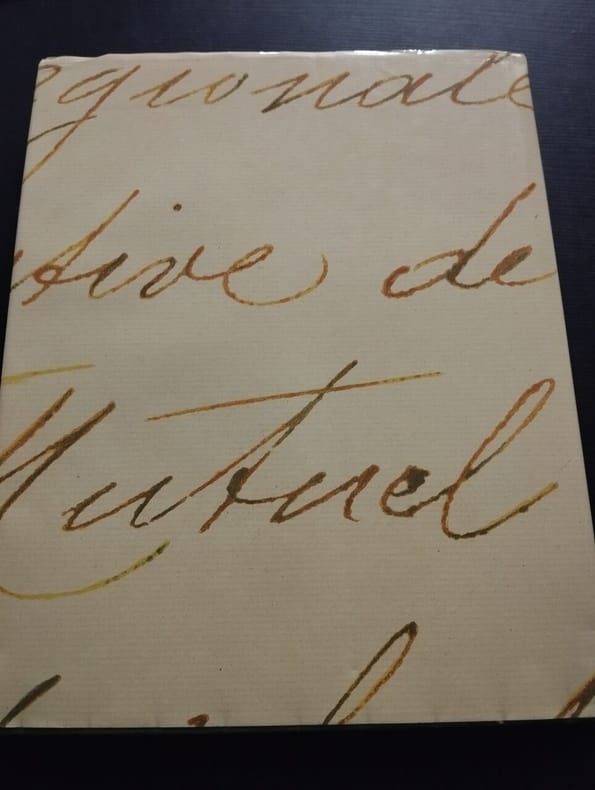 egionale
tive de
Mutuel